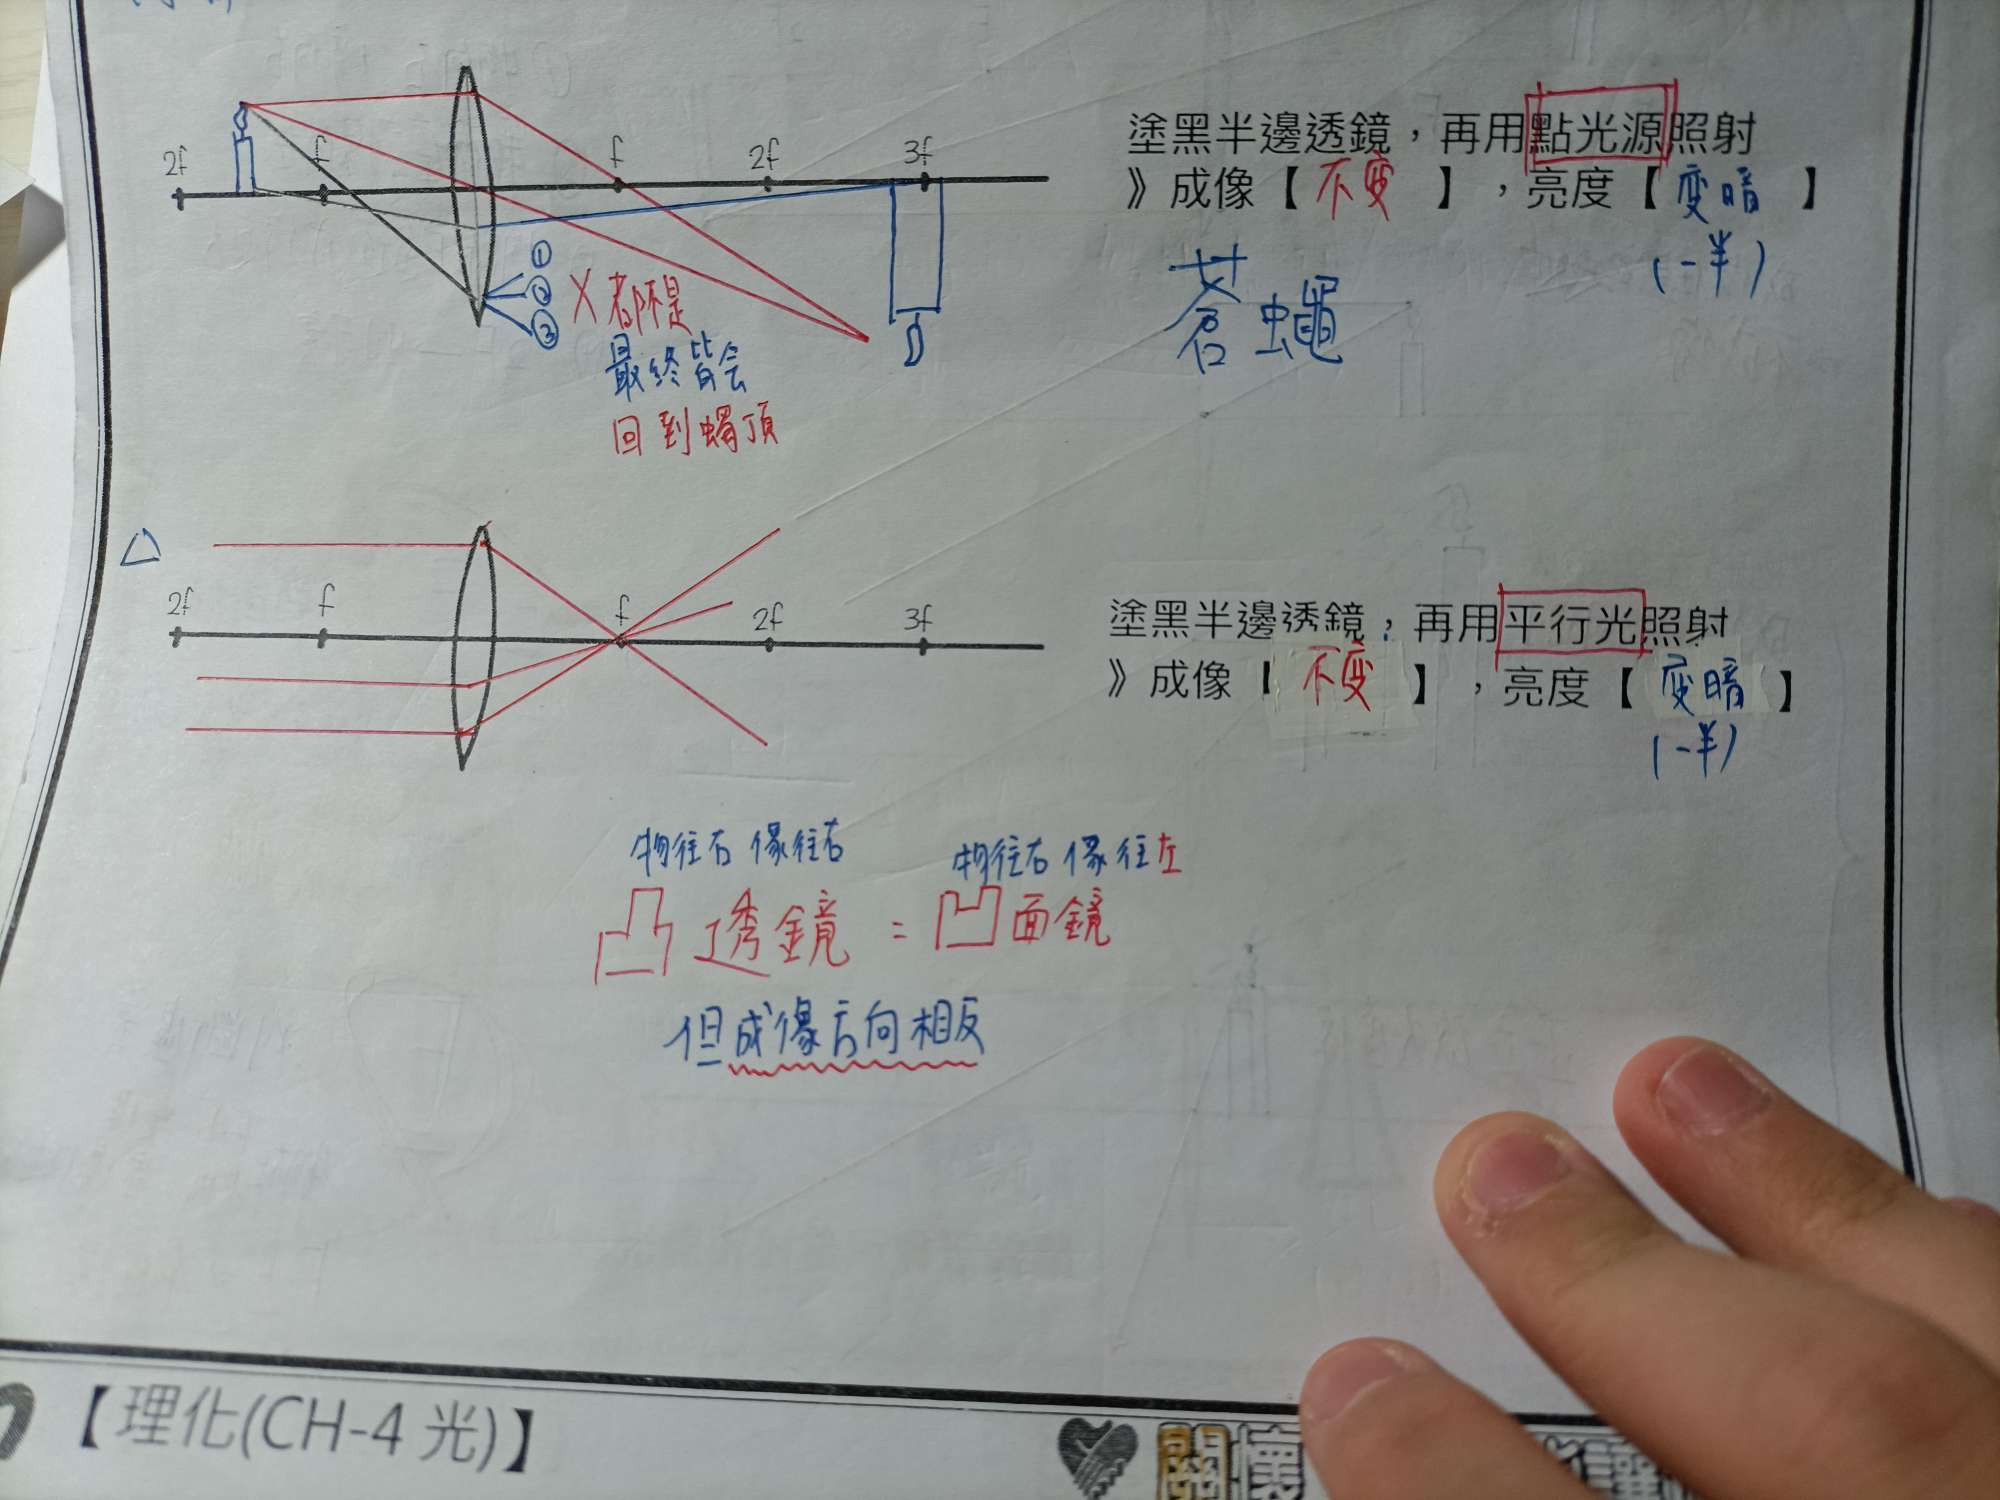 2f
f
f
2f
3f
①
②
③
X 都不是
最終皆会
回到蠋頂
塗黑半邊透鏡，再用點光源照射
》成像【不变】，亮度【变暗】
(一半)
蒼蠅
△
2f
f
f
2f
3f
塗黑半邊透鏡，再用平行光照射
》成像【不变】，亮度【变暗】
(一半)
物往右 像往右
物往右 像往左
凸透鏡 = 凹面鏡
但成像方向相反
【理化(CH-4 光)】
關懷